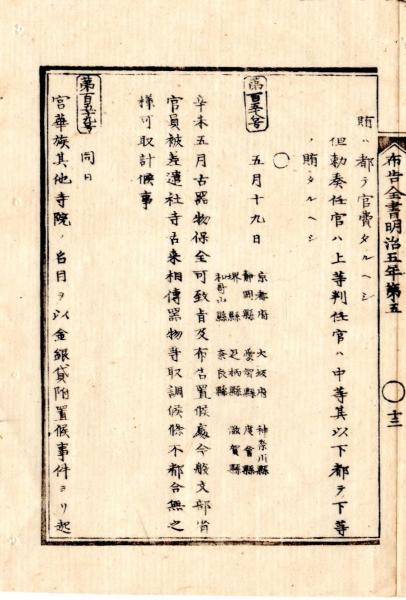 布告全書明治五年第五
〇十三
賄ハ都テ官費タルヘシ
但勅奏任官ハ上等判任官ハ中等其以下都テ下等
ノ賄タルヘシ
〇
第百五十八号 五月十九日
京都府 大坂府 神奈川縣
静岡縣 愛知縣 度會縣
堺縣 足柄縣 滋賀縣
和哥山縣 奈良縣
辛未五月古器物保全可致旨及布告置候處今般文部省
官員被差遣社寺古来相傳器物等取調候條不都合無之
様可取計候事
第百五十九号 同日
宮華族其他寺院ノ名目ヲ以金銀貸附置候事件ヨリ起